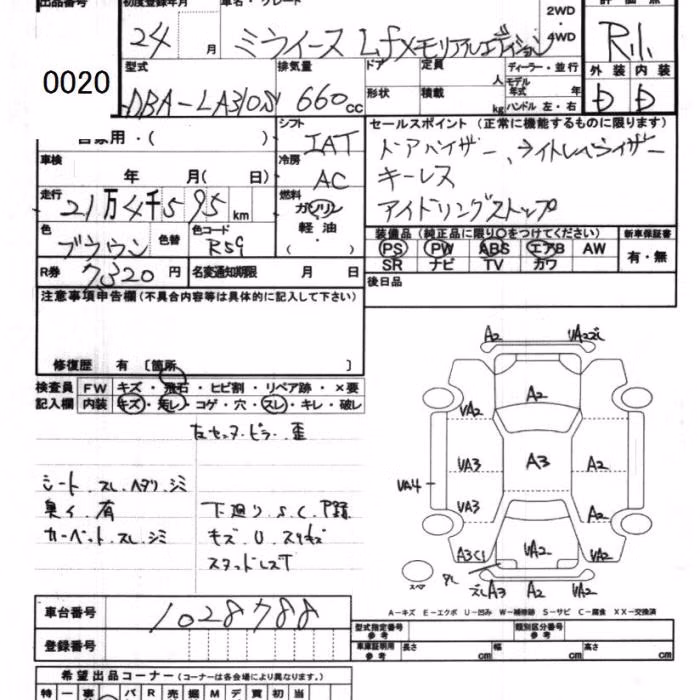 出品番号 初度登録年月 車名・グレード 評価点
0020 24 月 ミライース Lfメモリアルエディション 2WD・4WD R.1.
型式 排気量 ドア 定員 人 ディーラー・並行 外装 内装
DBA-LA310S 660cc 形状 積載 kg モデル年式 年 ハンドル 左・右 D D
自家用・( シフト IAT セールスポイント (正常に機能するものに限ります)
車検 年 月( 日) 冷房 AC ドアバイザー、ライトレベライザー
キーレス
走行 21万4千595km 燃料 ガソリン 軽油 ( ・ ) アイドリングストップ
色 ブラウン 色替 色コード R59 装備品 (純正品に限り○をつけてください) 新車保証書
PS PW ABS エアB AW 有・無
R券 7320円 名変通知期限 月 日 SR ナビ TV カワ
後日品
注意事項申告欄 (不具合内容等は具体的に記入して下さい)
修復歴 有 〔箇所 〕
検査員 FW キズ・飛石・ヒビ割・リペア跡・×要
記入欄 内装 キズ・汚レ・コゲ・穴・スレ・キレ・破レ
左センタ・ピラー 歪
シート.スレ.ヘタリ.シミ
臭イ.有 下廻り.S.C.
カーペット.スレ.シミ キズ.U.スリキズ
スタッドレスT
A2 VA2ズレ
A2
VA2
VA3 A3 A2
VA4
VA3 A2
A3C1 VA2 VA2
スペア ズレA3 A2 VA2
A-キズ E-エクボ U-凹み W-補修跡 S-サビ C-腐食 XX-交換済
車台番号 1028788
型式指定番号 参考 類別区分番号 参考
登録番号 車庫証明用 参考 長さ cm 幅 cm 高さ cm
希望出品コーナー (コーナーは各会場により異なります。)
特 一 事 バ R 売 掘 M デ 買 初 当